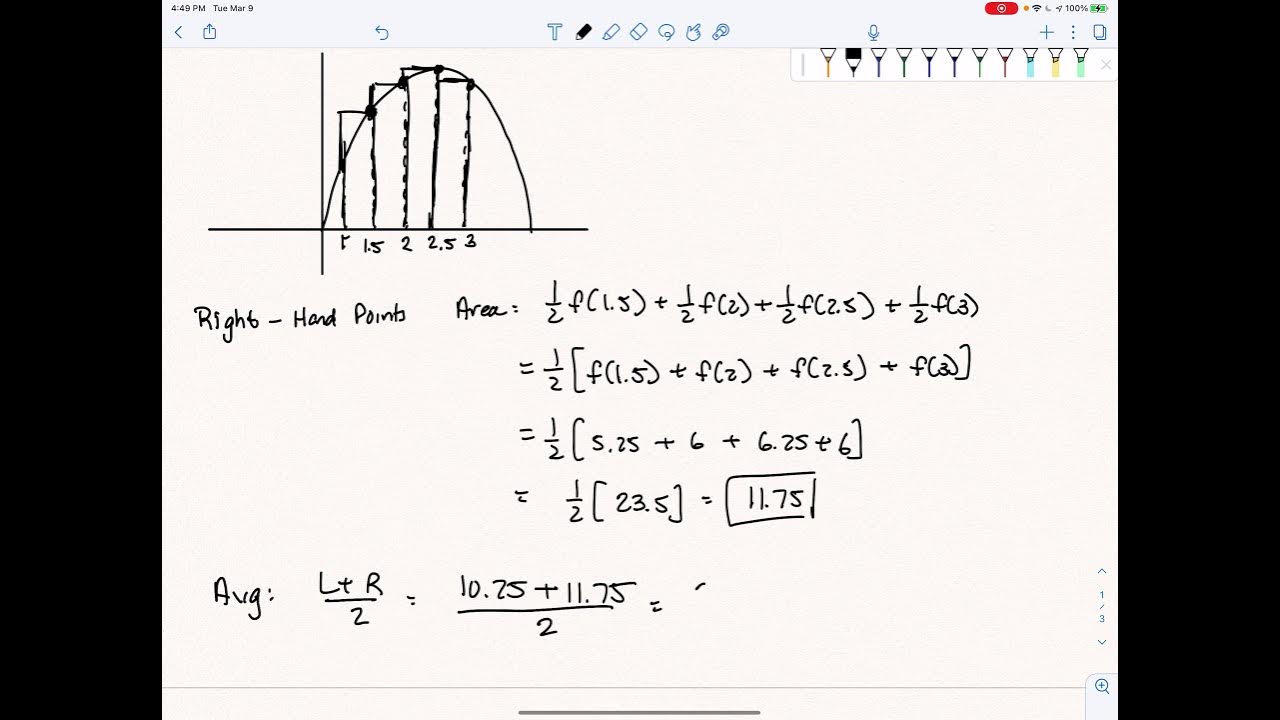 4:49 PM Tue Mar 9
100%
1 1.5 2 2.5 3
Right - Hand Points Area: 1/2 f(1.5) + 1/2 f(2) + 1/2 f(2.5) + 1/2 f(3)
= 1/2 [f(1.5) + f(2) + f(2.5) + f(3)]
= 1/2 [5.25 + 6 + 6.25 + 6]
= 1/2 [23.5] = 11.75
Avg: L+R/2 = 10.25 + 11.75/2 =
1/3